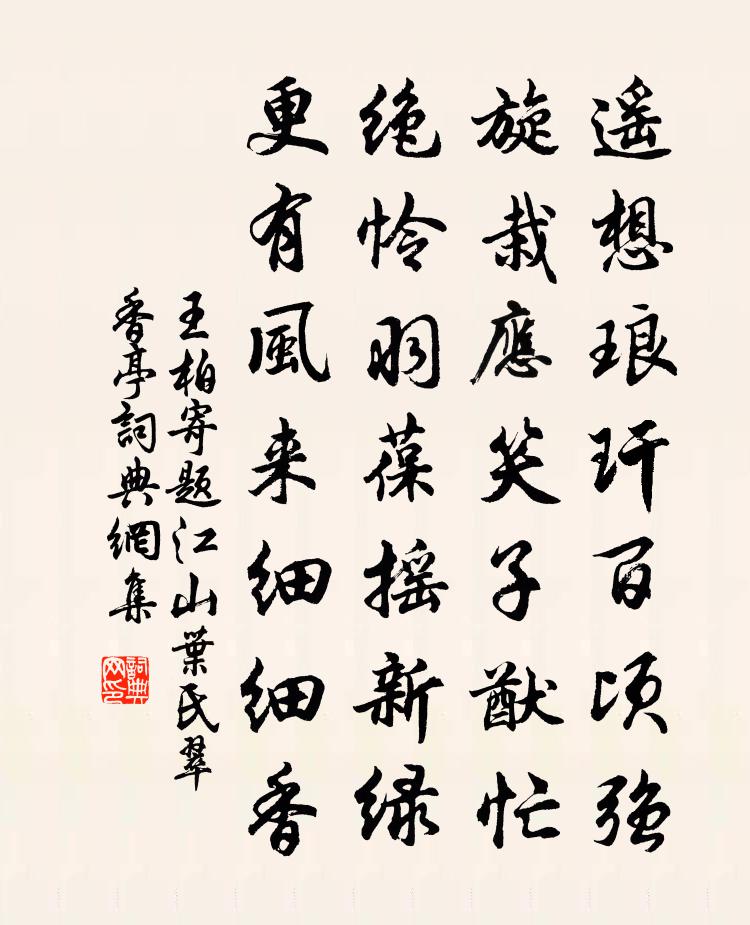 遥想琅玕百顷强
旋栽應笑子猷忙
绝怜羽葆摇新绿
更有風来细细香
王柏寄题江山葉氏翠
香亭詞典網集
詞典网印